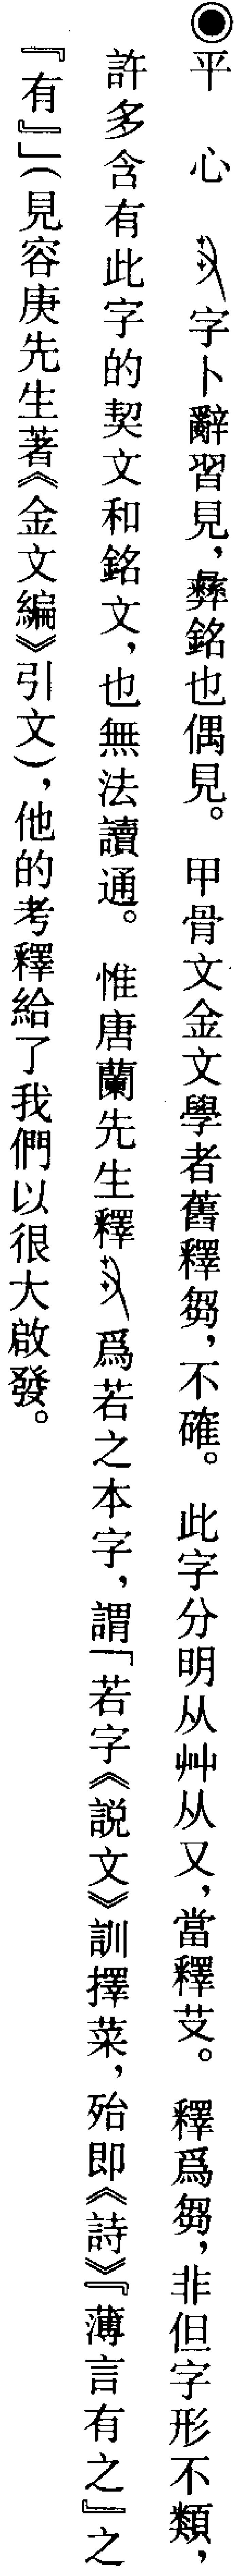 ◉平　心　字卜辭習見，彝銘也偶見。　甲骨文金文學者舊釋芻，不確。　此字分明从艸从又，當釋芆。　釋爲芻，非但字形不類，
許多含有此字的契文和銘文，也無法讀通。　惟唐蘭先生釋爲若之本字，謂「若字《説文》訓擇菜，殆即《詩》『薄言有之』之
『有』」（見容庚先生著《金文編》引文），他的考釋給了我們以很大啟發。